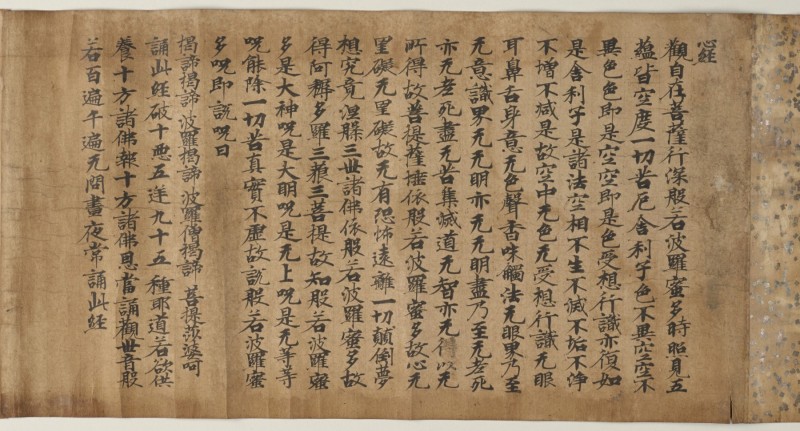 心経
觀自在菩薩行深般若波羅蜜多時照見五
蘊皆空度一切苦厄舎利子色不異空空不
異色色即是空空即是色受想行識亦復如
是舎利子是諸法空相不生不滅不垢不淨
不増不減是故空中无色无受想行識无眼
耳鼻舌身意无色聲香味觸法无眼界乃至
无意識界无无明亦无无明盡乃至无老死
亦无老死盡无苦集滅道无智亦无得以无
所得故菩提薩埵依般若波羅蜜多故心无
罣礙无罣礙故无有恐怖遠離一切顛倒夢
想究竟涅槃三世諸佛依般若波羅蜜多故
得阿耨多羅三藐三菩提故知般若波羅蜜
多是大神呪是大明呪是无上呪是无等等
呪能除一切苦真實不虚故說般若波羅蜜
多呪即說呪曰
揭諦揭諦波羅揭諦波羅僧揭諦 菩提莎婆呵
誦此經破十惡五逆九十五種耶道若欲供
養十方諸佛報十方諸佛恩當誦觀世音般
若百遍千遍无間晝夜常誦此經